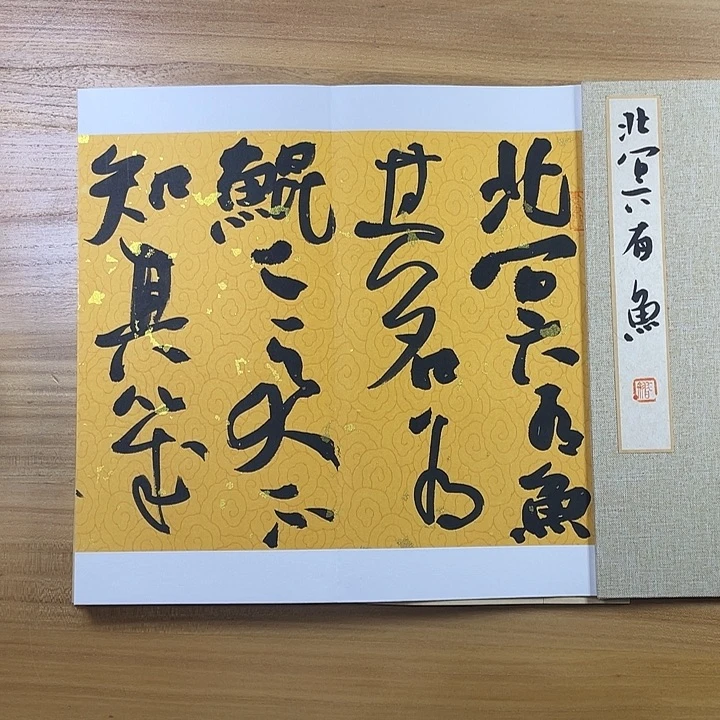 北冥有魚
北冥有魚
其名為
鯤〻之大不
知其幾